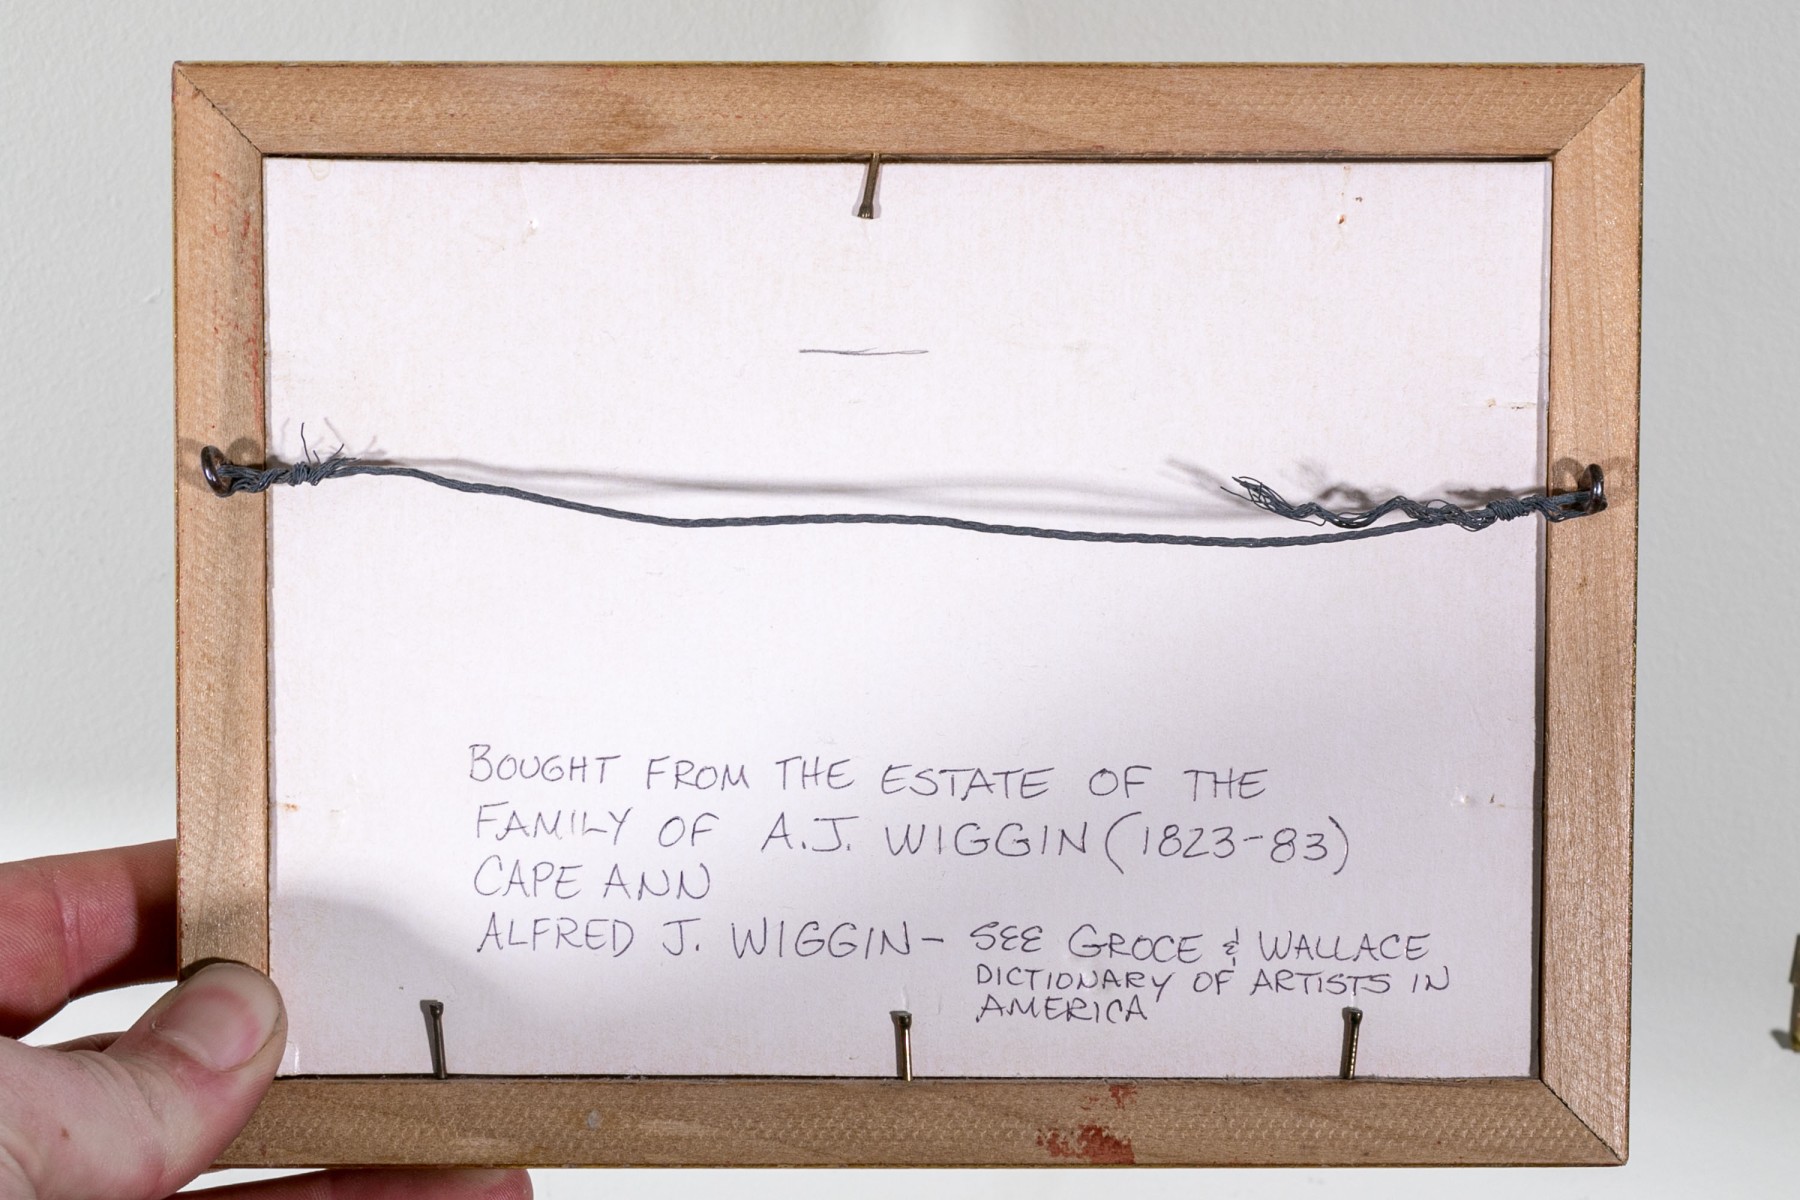 BOUGHT FROM THE ESTATE OF THE
FAMILY OF A.J. WIGGIN (1823-83)
CAPE ANN
ALFRED J. WIGGIN - SEE GROCE & WALLACE
DICTIONARY OF ARTISTS IN
AMERICA